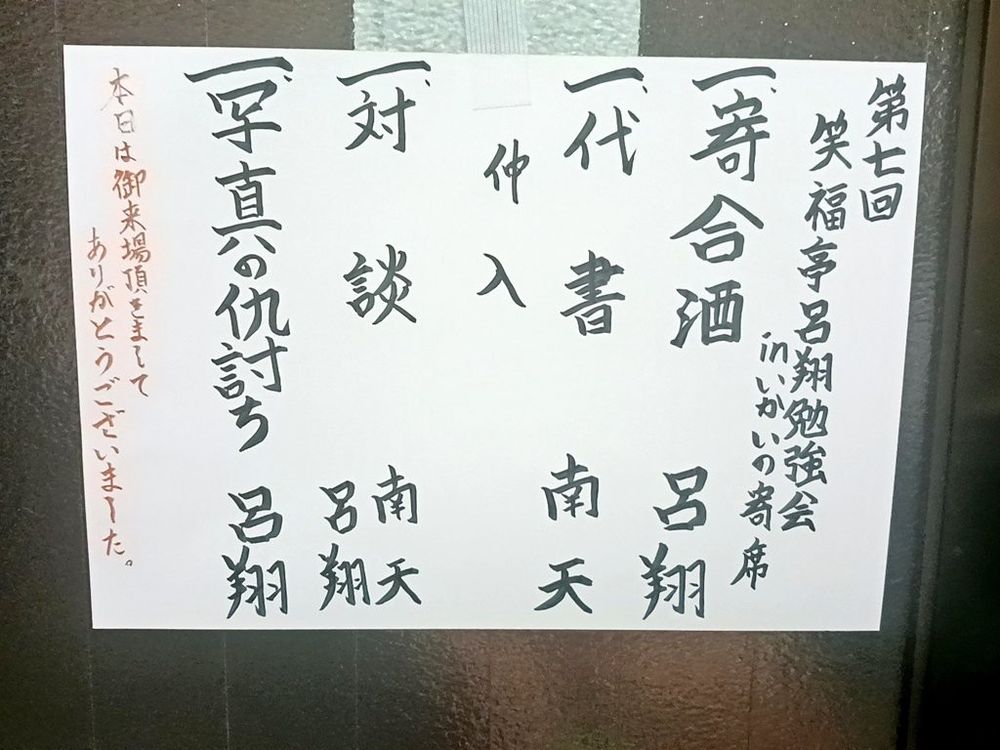 第七回
笑福亭呂翔勉強会
inいかいの寄席
一、寄合酒 呂翔
一、代書 南天
仲入
一、対談 南天
呂翔
一、写真の仇討ち 呂翔
本日は御来場頂きまして
ありがとうございました。